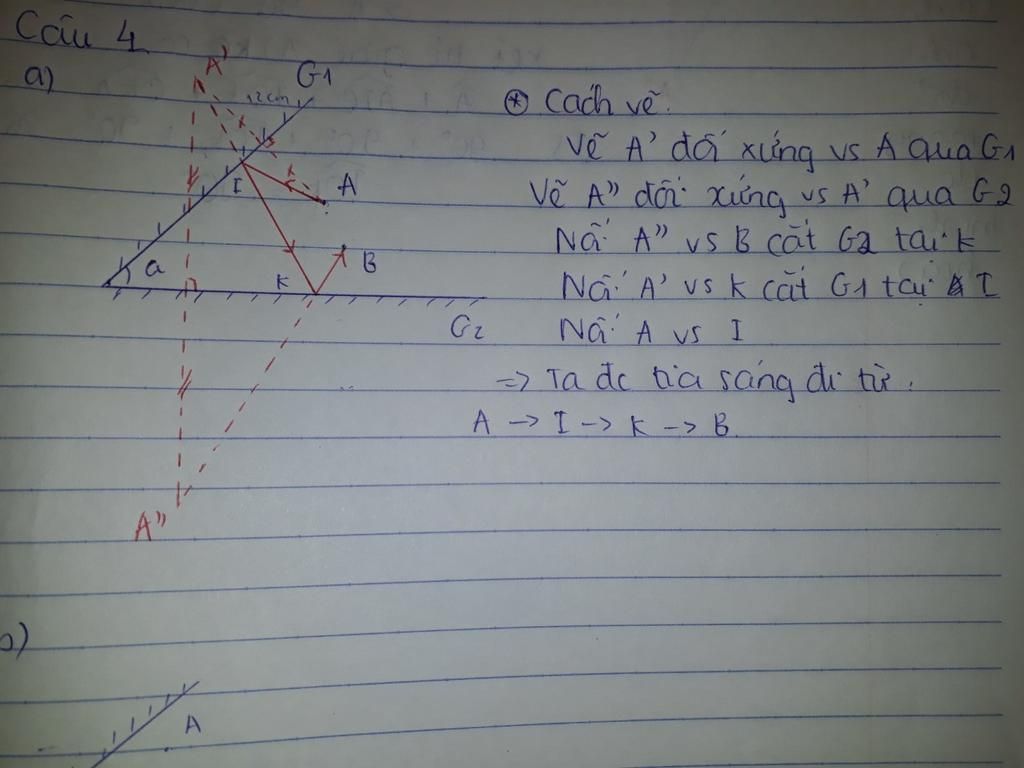 Câu 4
a)
A'
G1
12cm
I
A
a
K
B
G2
A''
⊛ Cách vẽ:
Vẽ A' đối xứng vs A qua G1
Vẽ A'' đối xứng vs A' qua G2
Nối A'' vs B cắt G2 tại K
Nối A' vs K cắt G1 tại I
Nối A vs I
=> Ta đc tia sáng đi từ:
A -> I -> K -> B.
b)
A